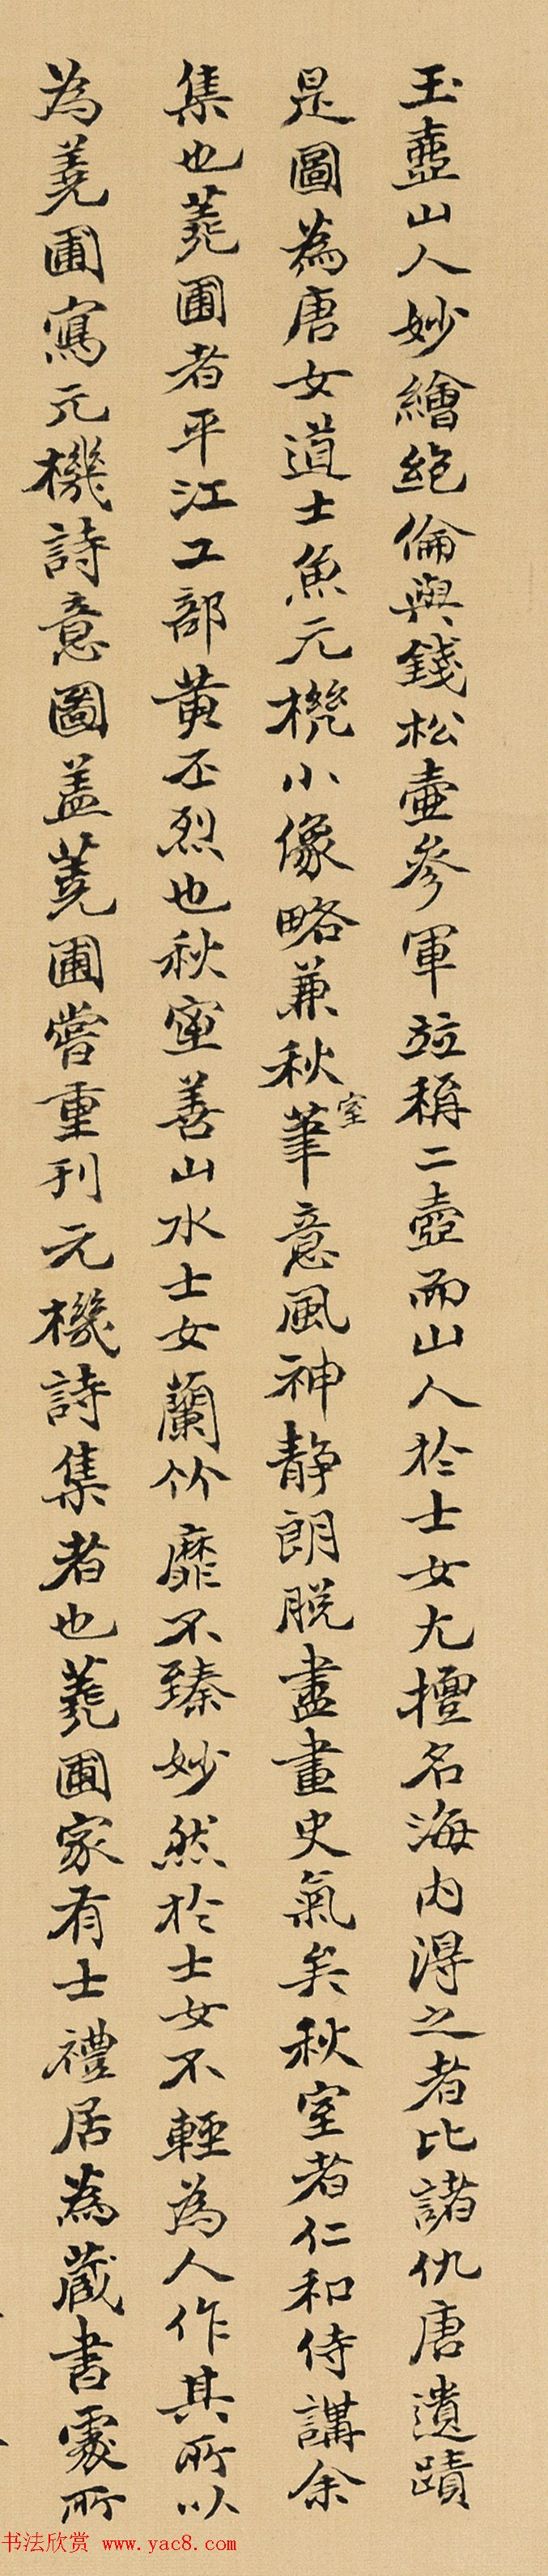 玉壺山人妙繪絕倫與錢松壺參軍竝稱二壺而山人於士女尤擅名海內得之者比諸仇唐遺蹟
是圖為唐女道士魚元機小像略兼秋室筆意風神靜朗脫盡畫史氣矣秋室者仁和侍講余
集也蕘圃者平江工部黃丕烈也秋室善山水士女蘭竹靡不臻妙然於士女不輕為人作其所以
為蕘圃寫元機詩意圖蓋蕘圃嘗重刊元機詩集者也蕘圃家有士禮居為藏書處所
书法欣赏 www.yac8.com